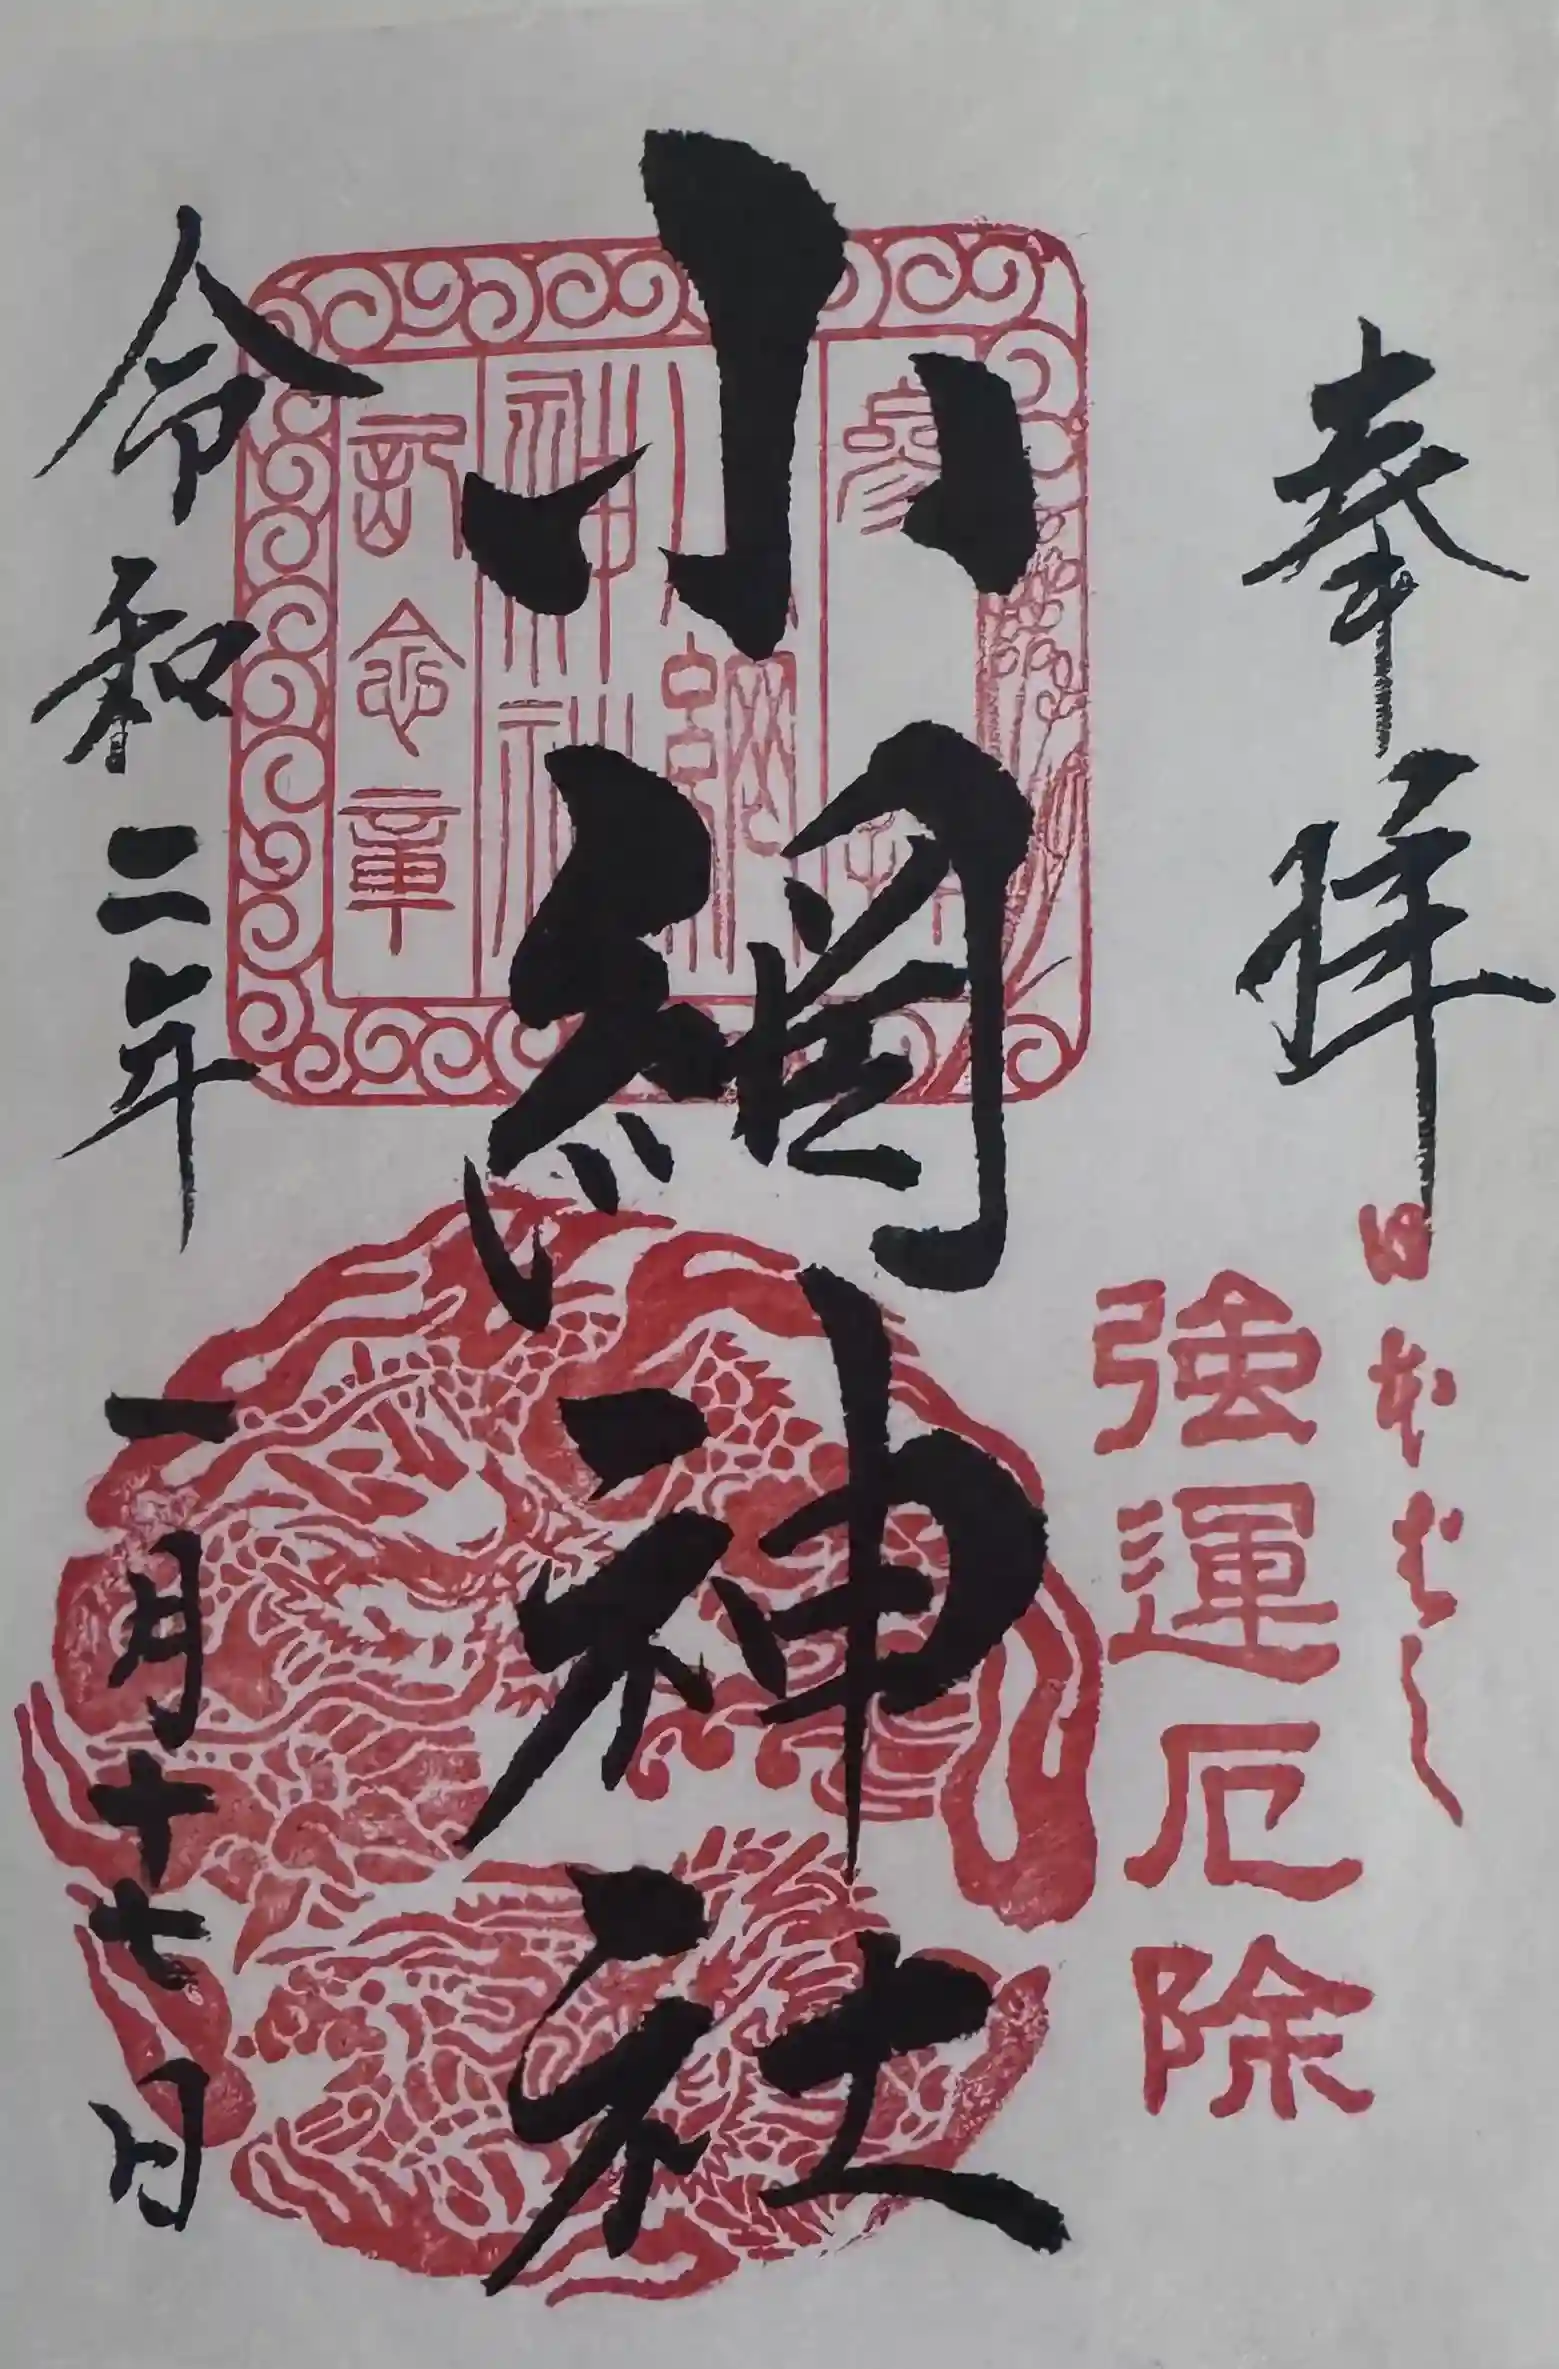 奉拝
日本橋
強運厄除
小網神社
参拝
小網
神社
記念章
令和二年一月十七日